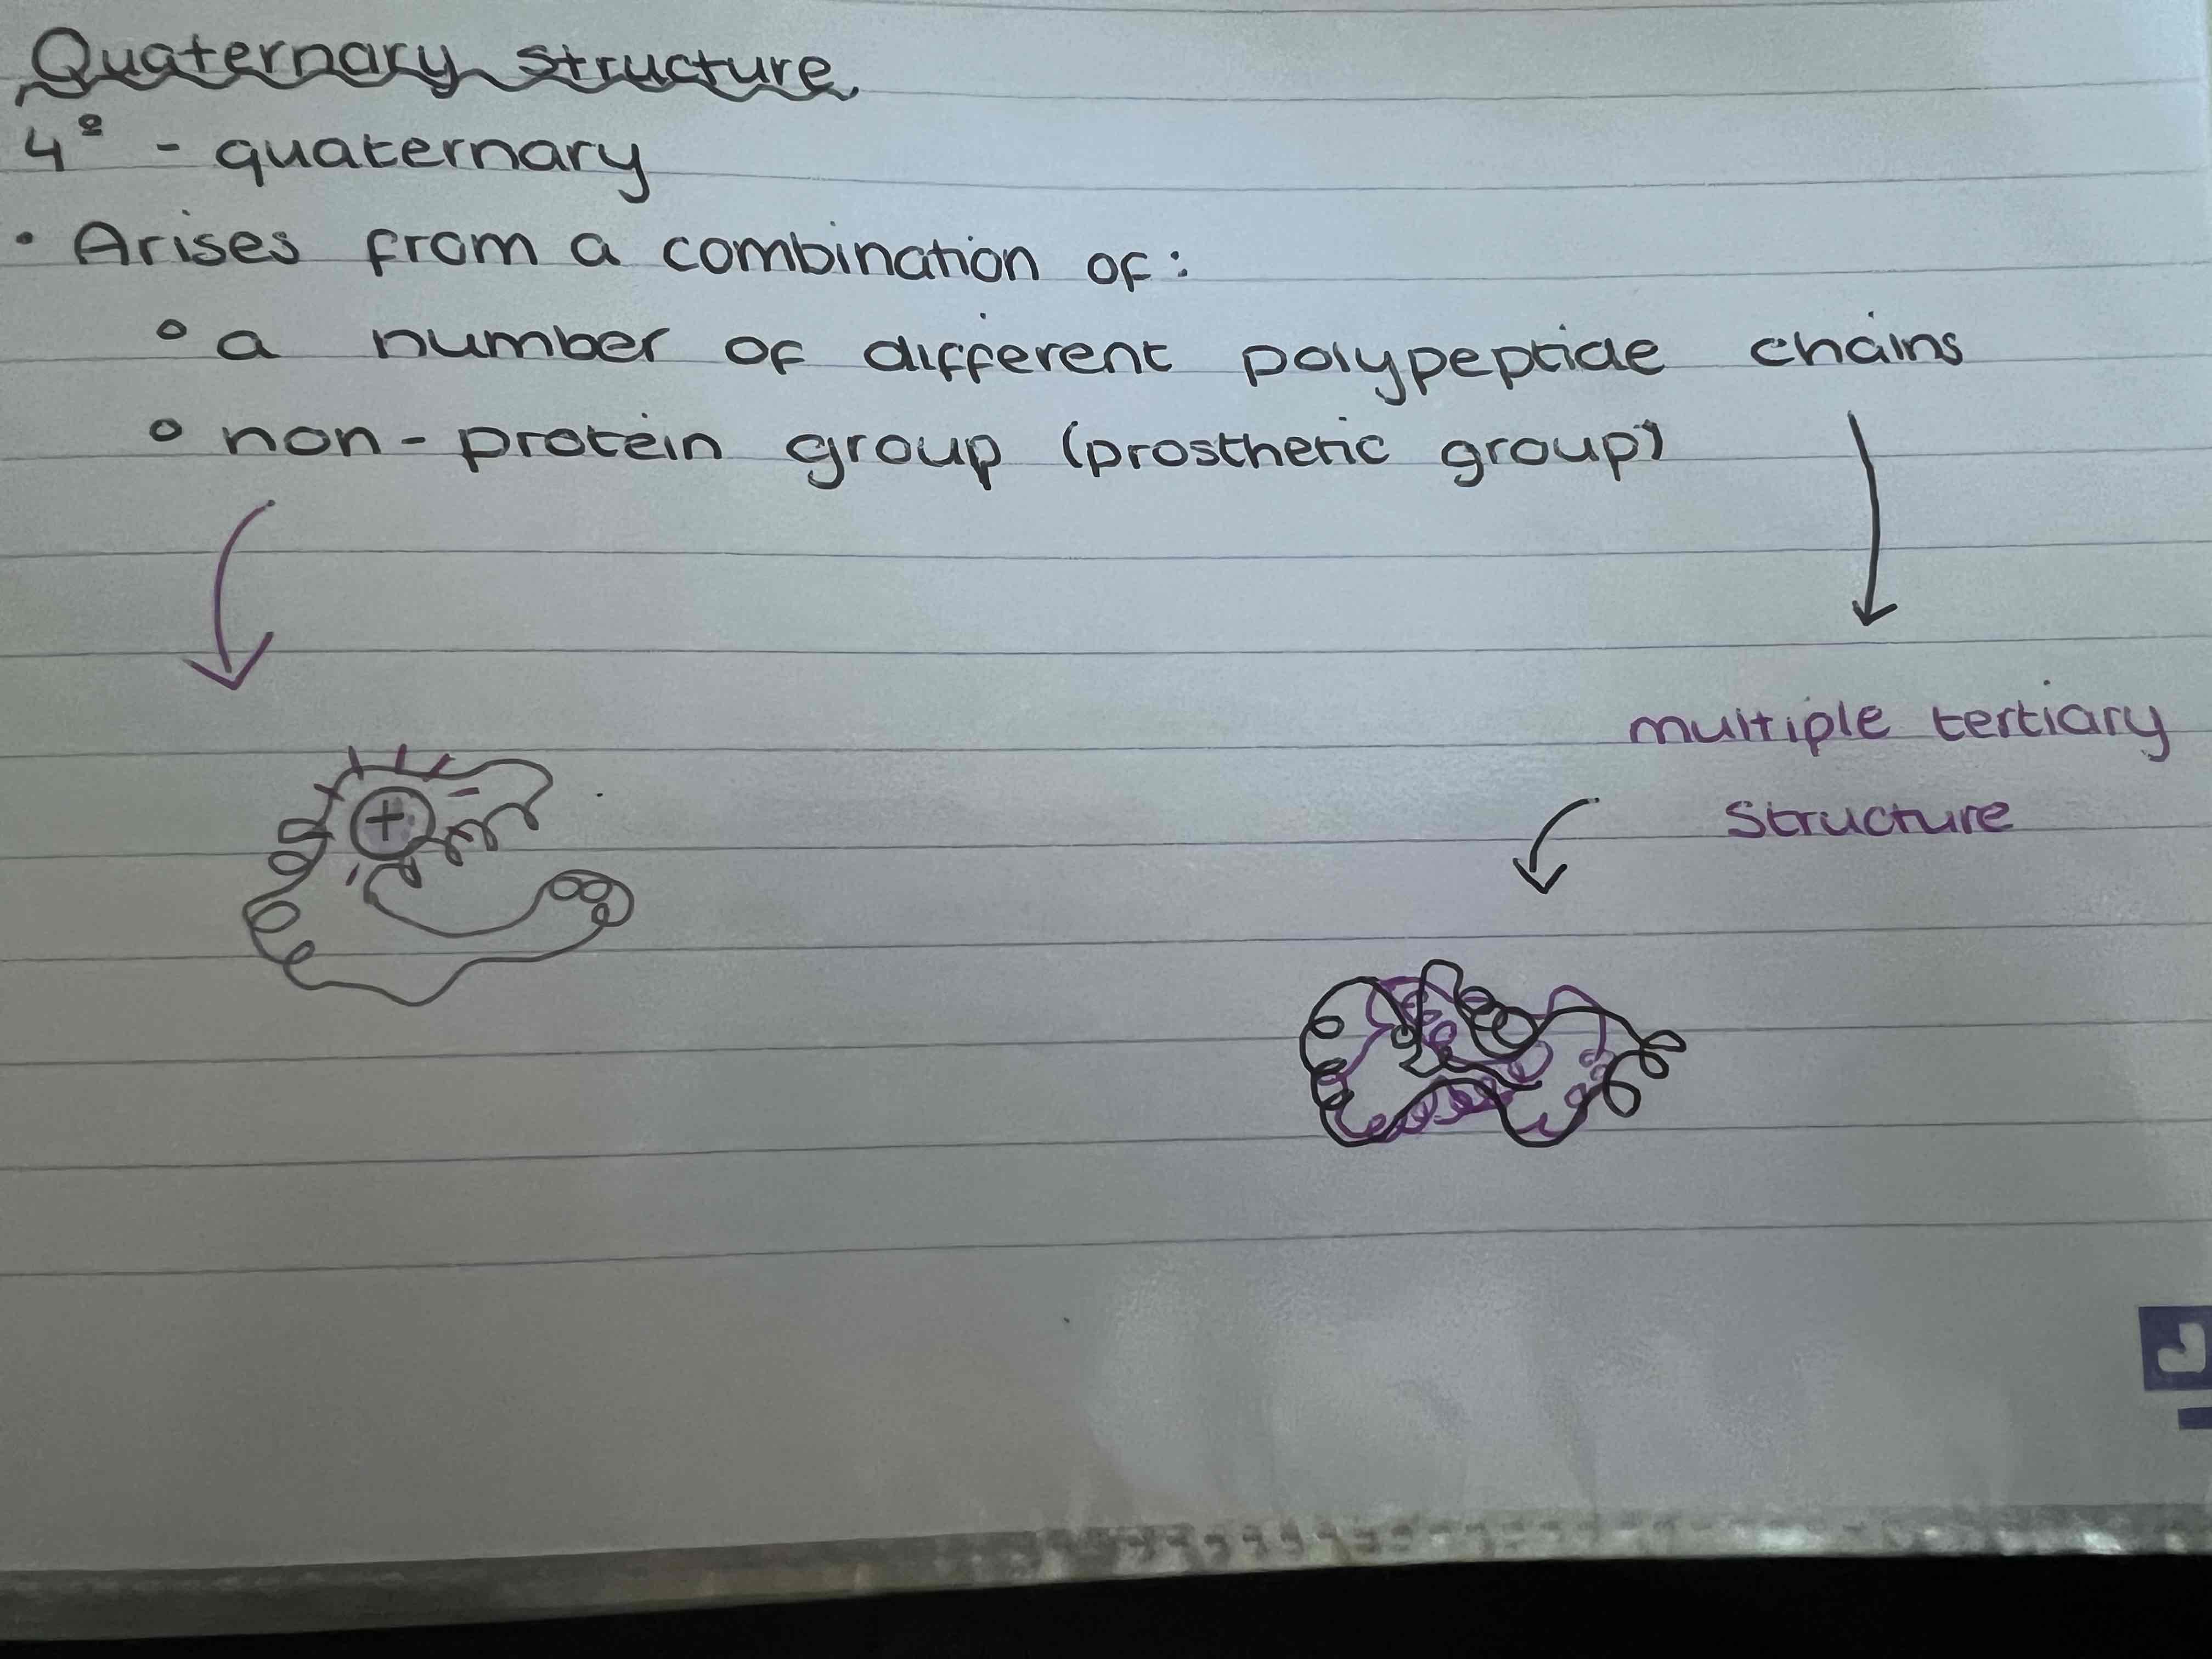 Quaternary structure
4º - quaternary
• Arises from a combination of:
◦ a number of different polypeptide chains
◦ non-protein group (prosthetic group)
multiple tertiary
structure
+